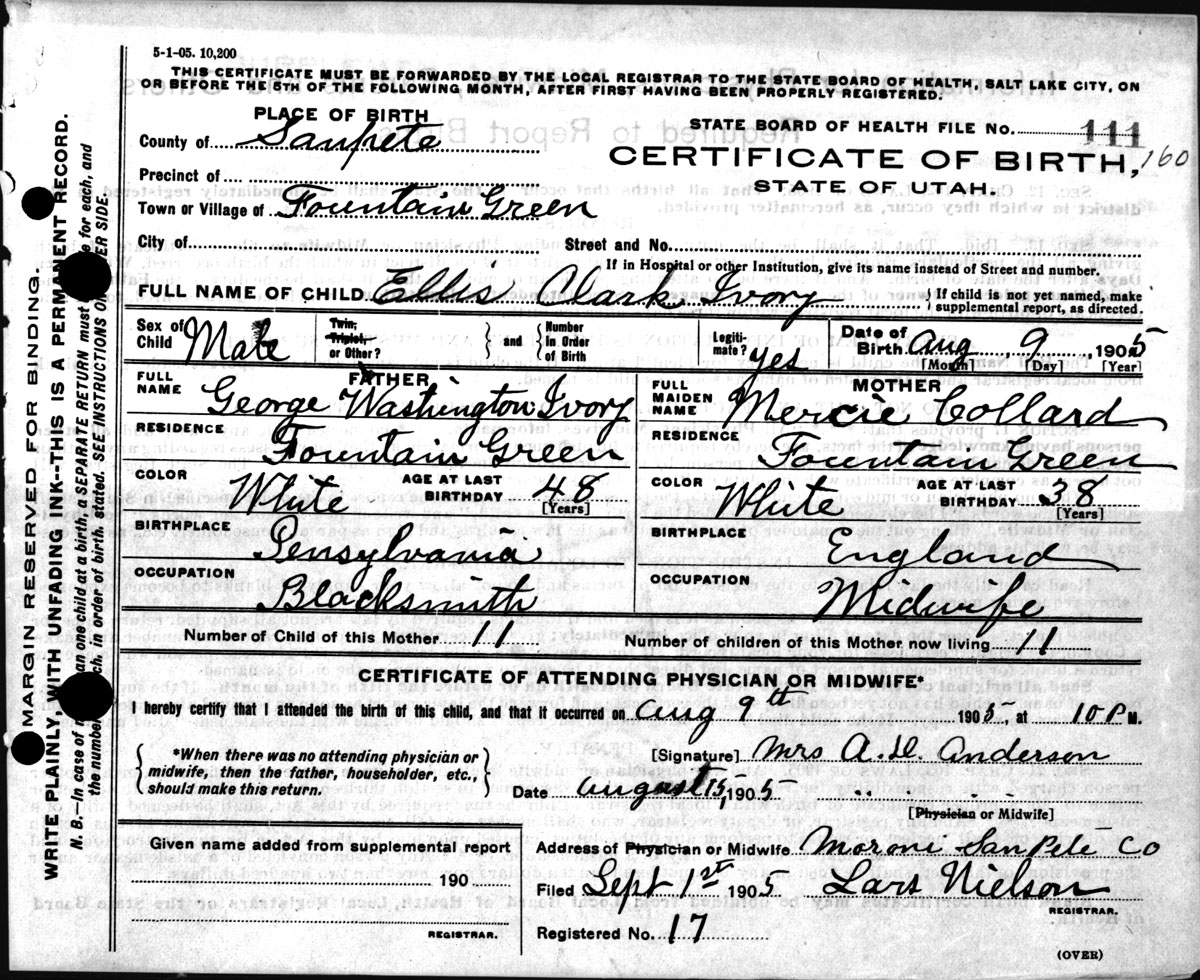 5-1-05. 10,200
THIS CERTIFICATE MUST BE FORWARDED BY THE LOCAL REGISTRAR TO THE STATE BOARD OF HEALTH, SALT LAKE CITY, ON
OR BEFORE THE 5TH OF THE FOLLOWING MONTH, AFTER FIRST HAVING BEEN PROPERLY REGISTERED.
PLACE OF BIRTH
STATE BOARD OF HEALTH FILE NO. 111
County of Sanpete
CERTIFICATE OF BIRTH, 160
Precinct of
STATE OF UTAH.
Town or Village of Fountain Green
City of Street and No.
If in Hospital or other Institution, give its name instead of Street and number.
FULL NAME OF CHILD. Ellis Clark Ivory } If child is not yet named, make supplemental report, as directed.
Sex of Child Male
Twin, Triplet, or Other? } and { Number In Order of Birth
Legiti-mate? yes
Date of Birth. Aug 9, 1905
[Month] [Day] [Year]
FATHER
FULL NAME George Washington Ivory
MOTHER
FULL MAIDEN NAME Mercie Collard
RESIDENCE Fountain Green
RESIDENCE Fountain Green
COLOR White AGE AT LAST BIRTHDAY 48 [Years]
COLOR White AGE AT LAST BIRTHDAY 38 [Years]
BIRTHPLACE Pensylvania
BIRTHPLACE England
OCCUPATION Blacksmith
OCCUPATION Midwife
Number of Child of this Mother 11
Number of children of this Mother now living. 11
CERTIFICATE OF ATTENDING PHYSICIAN OR MIDWIFE*
I hereby certify that I attended the birth of this child, and that it occurred on Aug 9th 1905, at 10 P M.
{ *When there was no attending physician or
midwife, then the father, householder, etc.,
should make this return. }
[Signature] Mrs A. D. Anderson
Date August 15, 1905
[Physician or Midwife]
Given name added from supplemental report
190
REGISTRAR.
Address of Physician or Midwife Moroni SanPete Co
Filed Sept 1st 1905 Lars Nielson
REGISTRAR.
Registered No. 17
(OVER)
MARGIN RESERVED FOR BINDING.
WRITE PLAINLY, WITH UNFADING INK--THIS IS A PERMANENT RECORD.
N. B.--In case of an one child at a birth, a SEPARATE RETURN must for each, and
the number ch, in order of birth, stated. SEE INSTRUCTIONS ON ER SIDE.